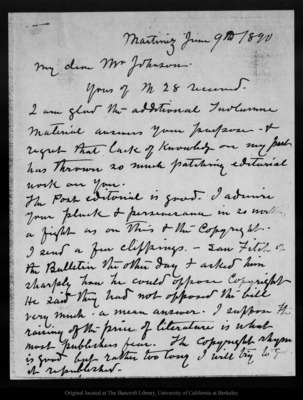 Martinez June 9th 1890
My dear Mr Johnson.
Yours of M 28 received.
I am glad the additional Tuolumne
material answers your purpose - &
regret that lack of knowledge on my part
has thrown so much patching editorial
work on you.
The Post editorial is good. I admire
your pluck & perseverance in so worthy
a fight as on this & the Copyright.
I send a few clippings. - Saw Fitch of
the Bulletin the other day & asked him
sharply how he could oppose Copyright
He said they had not opposed the bill
very much - a mean answer. I suppose the
raising of the price of literature is what
most publishers fear. The Copyright rhyme
is good but rather too long I will try to get
it republished.
Original located at The Bancroft Library, University of California at Berkeley